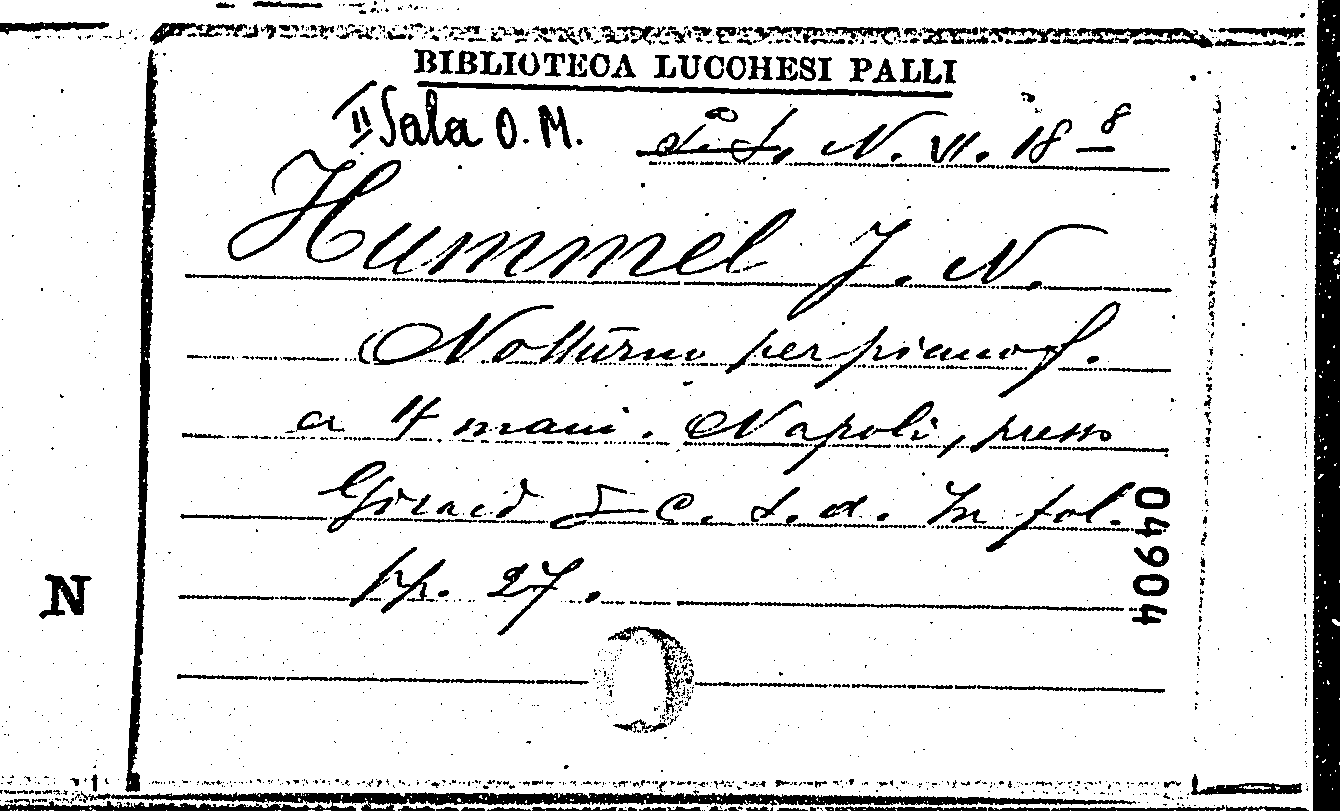 BIBLIOTECA LUCCHESI PALLI
II Sala O. M. N. VI. 18 8
Hummel J. N.
Notturno per pianof.
a 4 mani. Napoli, presso
Girard & C. s. d. In fol.
pp. 27.
04904
N